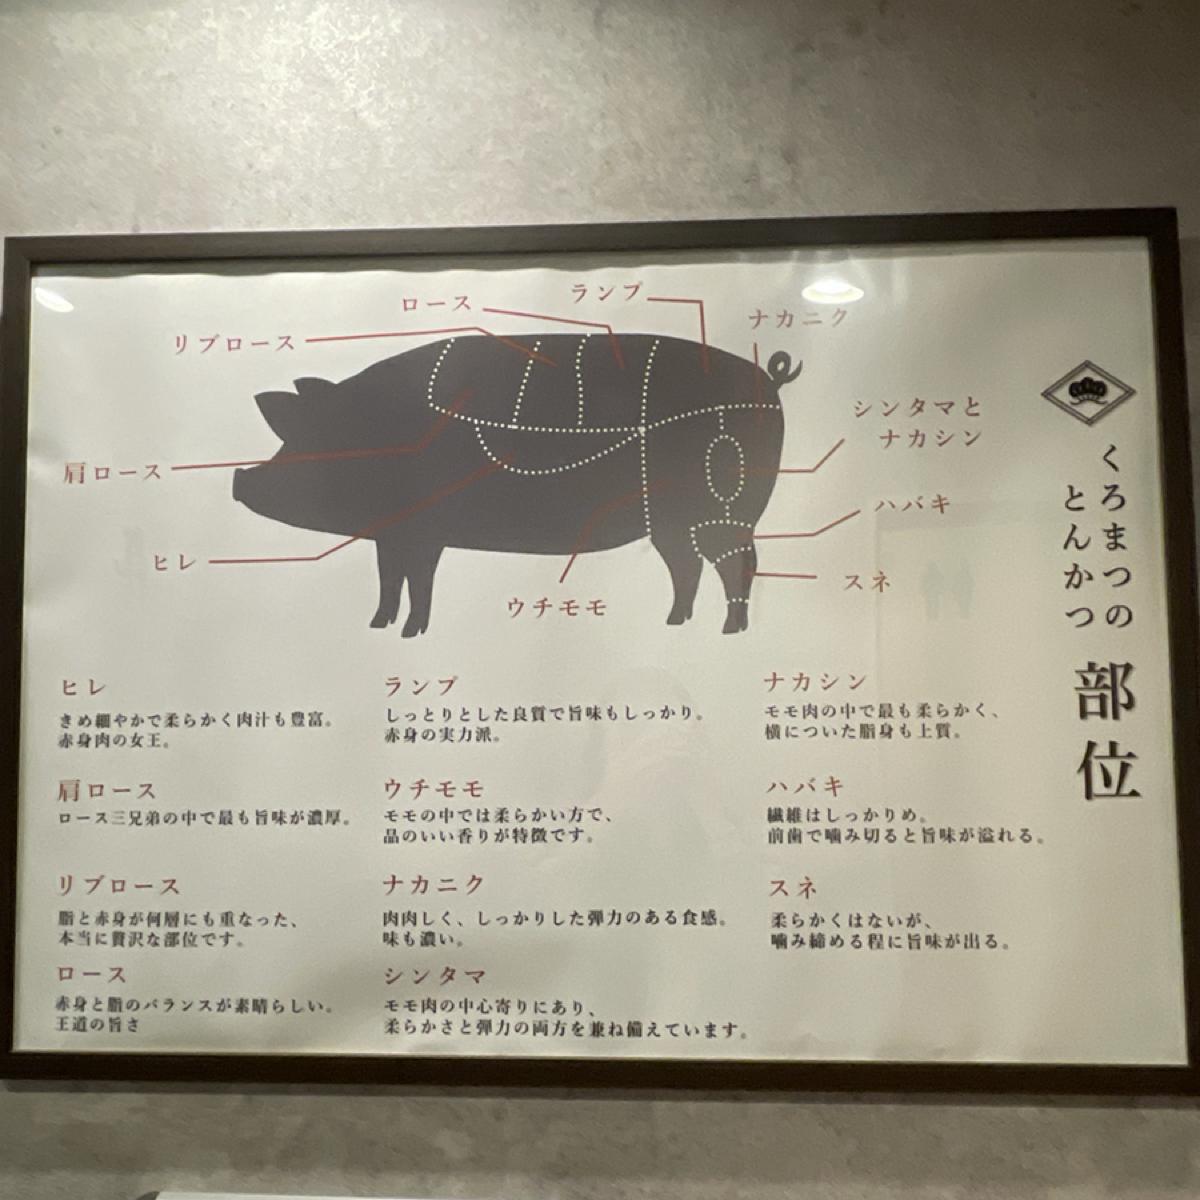 くろまつの
とんかつ
部位
ロース
ランプ
ナカニク
リブロース
シンタマと
ナカシン
肩ロース
ハバキ
ヒレ
スネ
ウチモモ
ヒレ
きめ細やかで柔らかく肉汁も豊富。
赤身肉の女王。
肩ロース
ロース三兄弟の中で最も旨味が濃厚。
リブロース
脂と赤身が何層にも重なった、
本当に贅沢な部位です。
ロース
赤身と脂のバランスが素晴らしい。
王道の旨さ
ランプ
しっとりとした良質で旨味もしっかり。
赤身の実力派。
ウチモモ
モモの中では柔らかい方で、
品のいい香りが特徴です。
ナカニク
肉肉しく、しっかりした弾力のある食感。
味も濃い。
シンタマ
モモ肉の中心寄りにあり、
柔らかさと弾力の両方を兼ね備えています。
ナカシン
モモ肉の中で最も柔らかく、
横についた脂身も上質。
ハバキ
繊維はしっかりめ。
前歯で噛み切ると旨味が溢れる。
スネ
柔らかくはないが、
噛み締める程に旨味が出る。